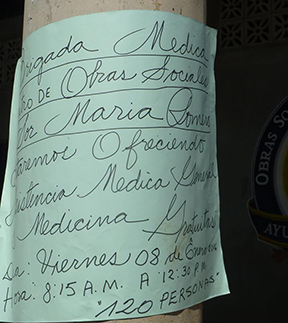 Brigada Medica
de Obras Sociales
Sor Maria Romero
Estaremos Ofreciendo
Asistencia Medica General
Medicina Gratuitas
Dia: Viernes 08 de Enero
Hora: 8:15 A.M. A 12:30 P.M.
"120 PERSONAS"
OBRAS SO
AYU